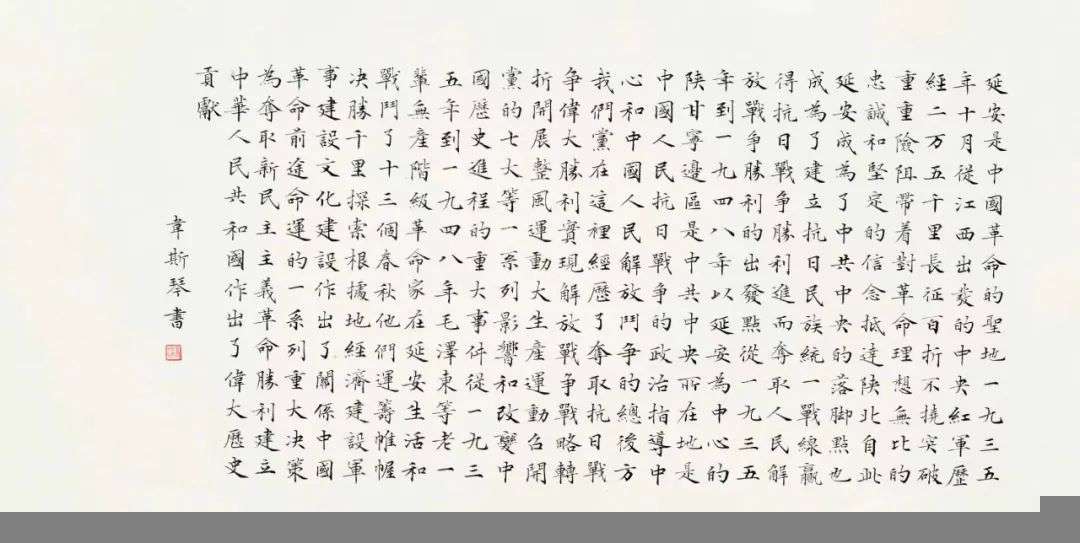 延安是中國革命的聖地一九三五
年十月從江西出發的中央紅軍歷
經二万五千里長征百折不撓突破
重重險阻帶着對革命理想無比的
忠誠和堅定的信念抵達陝北自此
延安成為了中共中央的落脚點也
成為了建立抗日民族統一戰線贏
得抗日戰爭勝利進而奪取人民解
放戰爭勝利的出發點從一九三五
年到一九四八年以延安為中心的
陝甘寧邊區是中共中央所在地是
中國人民抗日戰爭的政治指導中
心和中國人民解放鬥爭的總後方
我們黨在這裡經歷了奪取抗日戰
爭偉大勝利實現解放戰爭戰略轉
折開展整風運動大生產運動召開
黨的七大等一系列影響和改變中
國歷史進程的重大事件從一九三
五年到一九四八年毛澤東等老一
輩無產階級革命家在延安生活和
戰鬥了十三個春秋他們運籌帷幄
决勝千里探索根據地經濟建設軍
事建設文化建設作出了關係中國
革命前途命運的一系列重大决策
為奪取新民主主義革命勝利建立
中華人民共和國作出了偉大歷史
貢獻
韋斯琴書